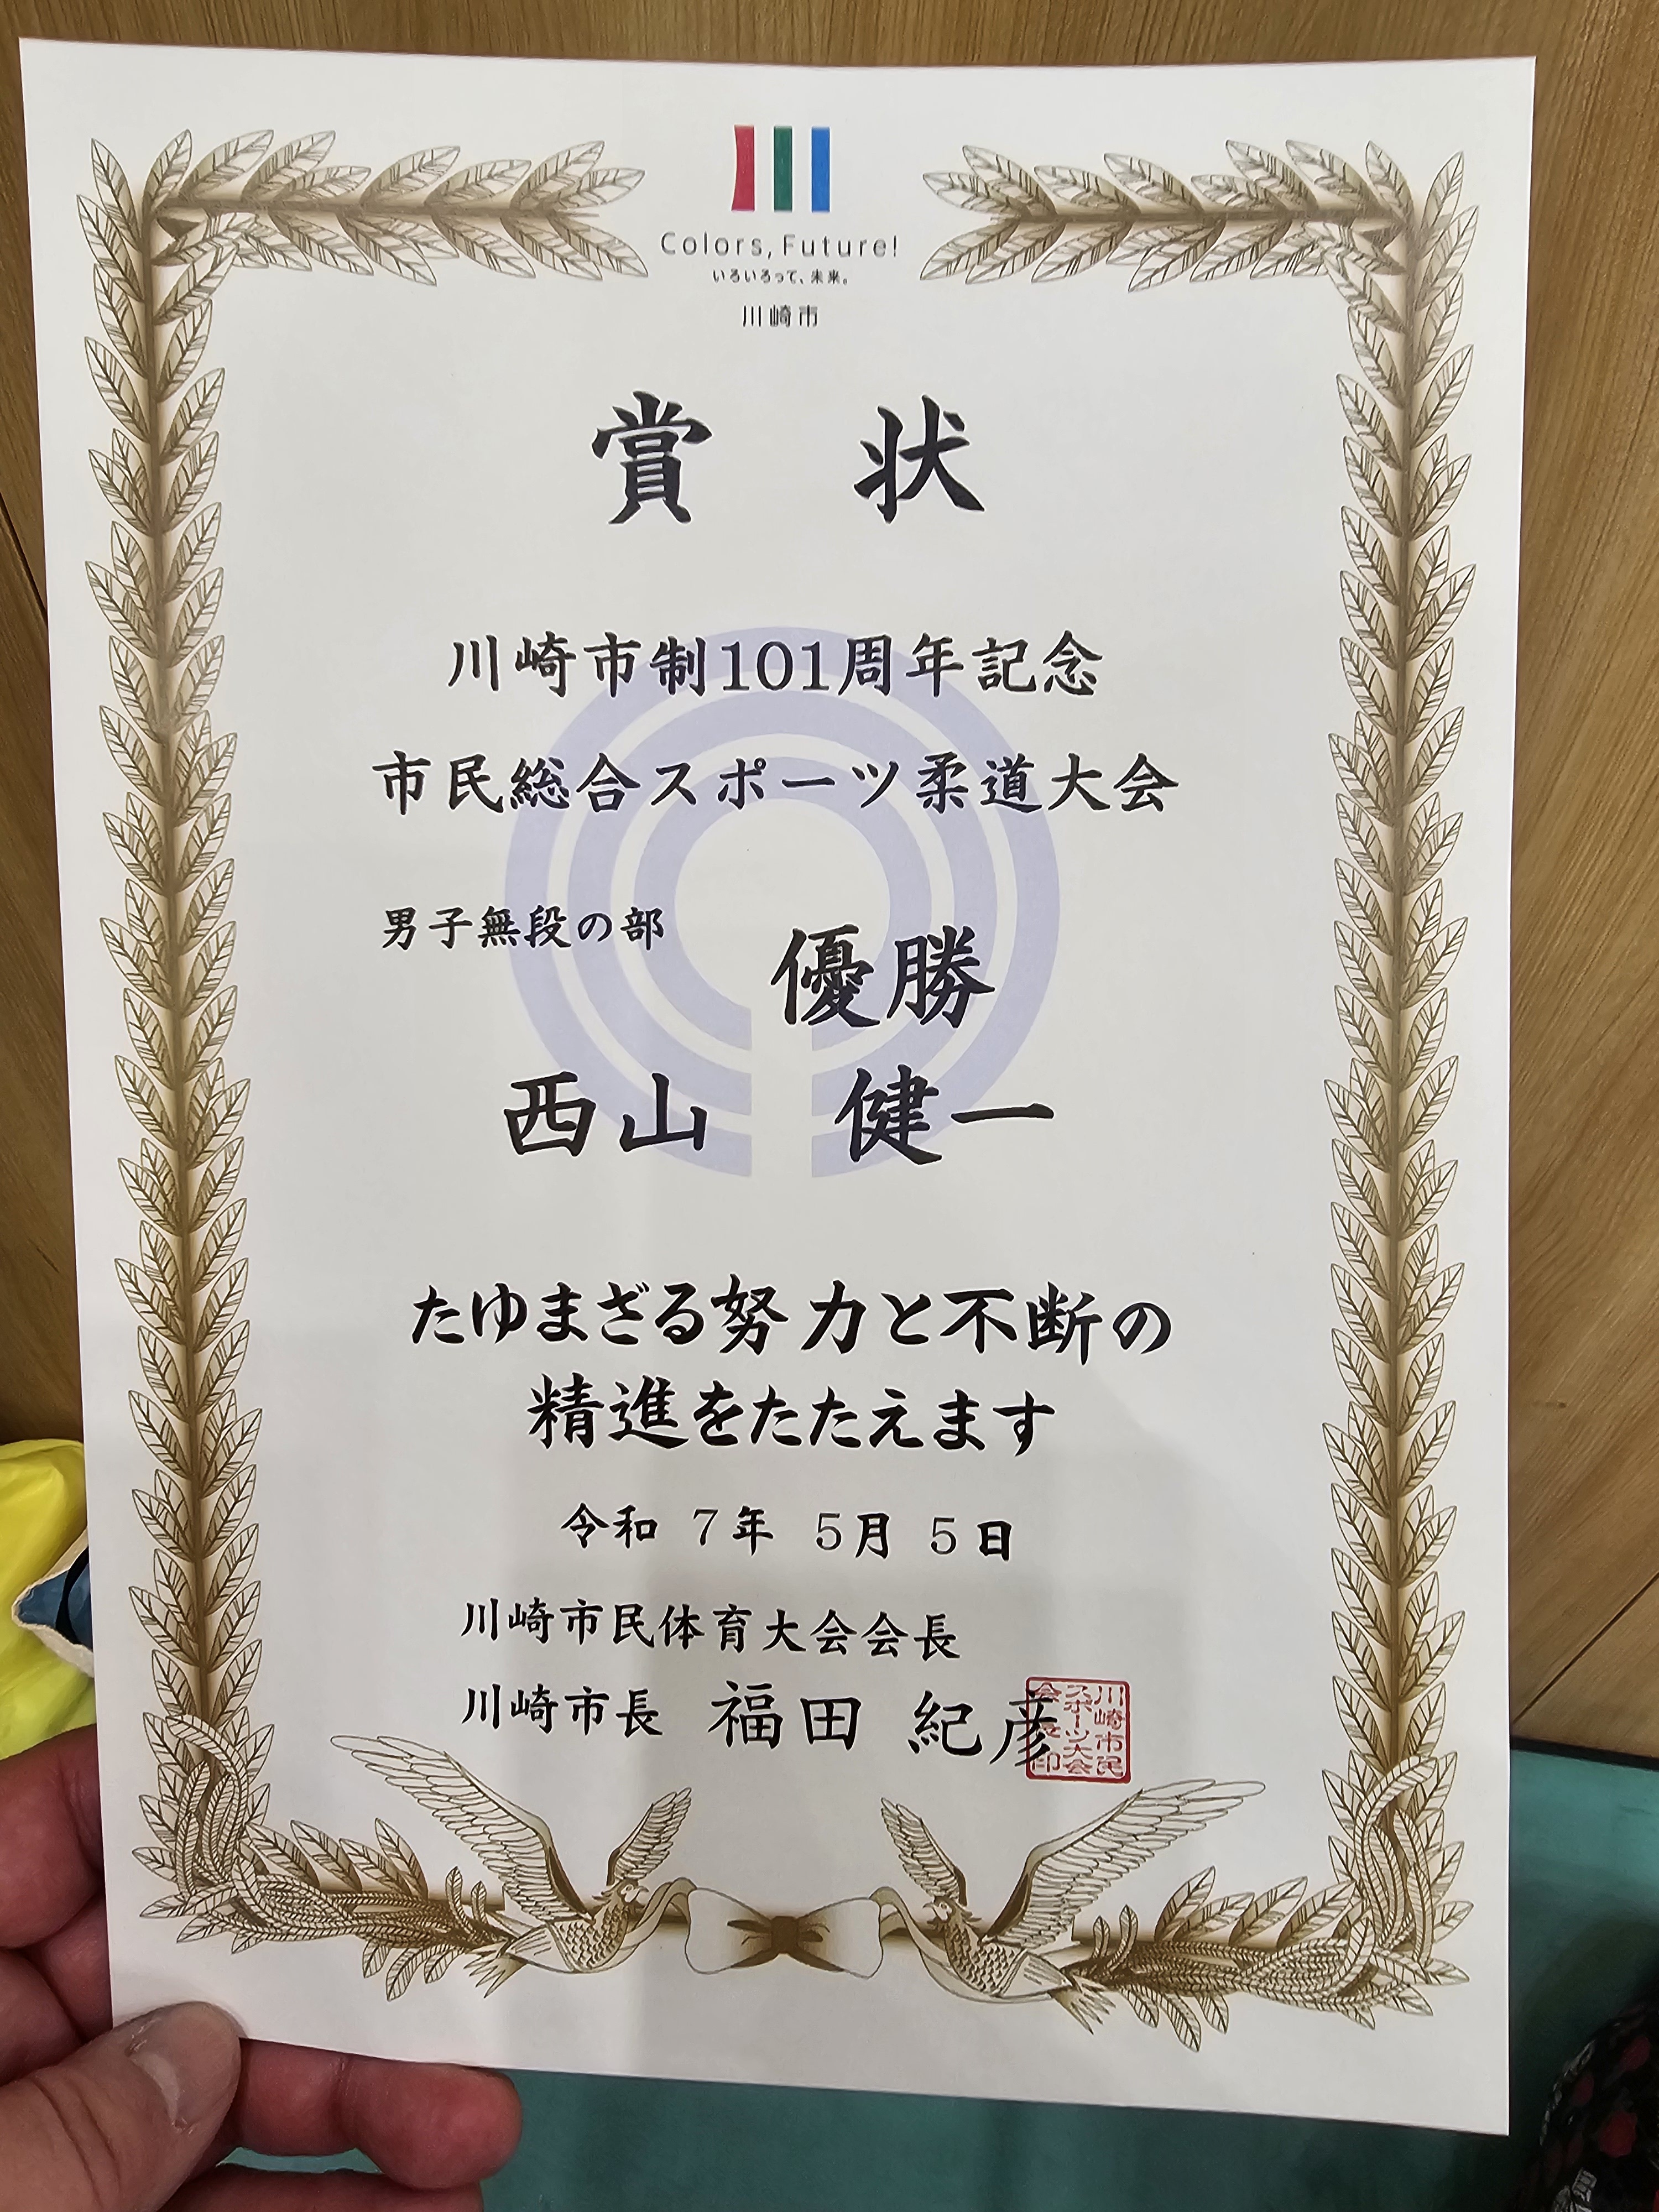 Colors, Future!
いろいろって、未来。
川崎市
賞状
川崎市制101周年記念
市民総合スポーツ柔道大会
男子無段の部
優勝
西山 健一
たゆまざる努力と不断の
精進をたたえます
令和 7年 5月 5日
川崎市民体育大会会長
川崎市長 福田 紀彦
川崎市民
スポーツ大会
会長印